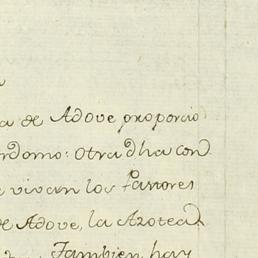 a de Adove proporcio
rdomo: otra dha con
e vivan los Parrores
de Adove, la Azotea
Tambien hay